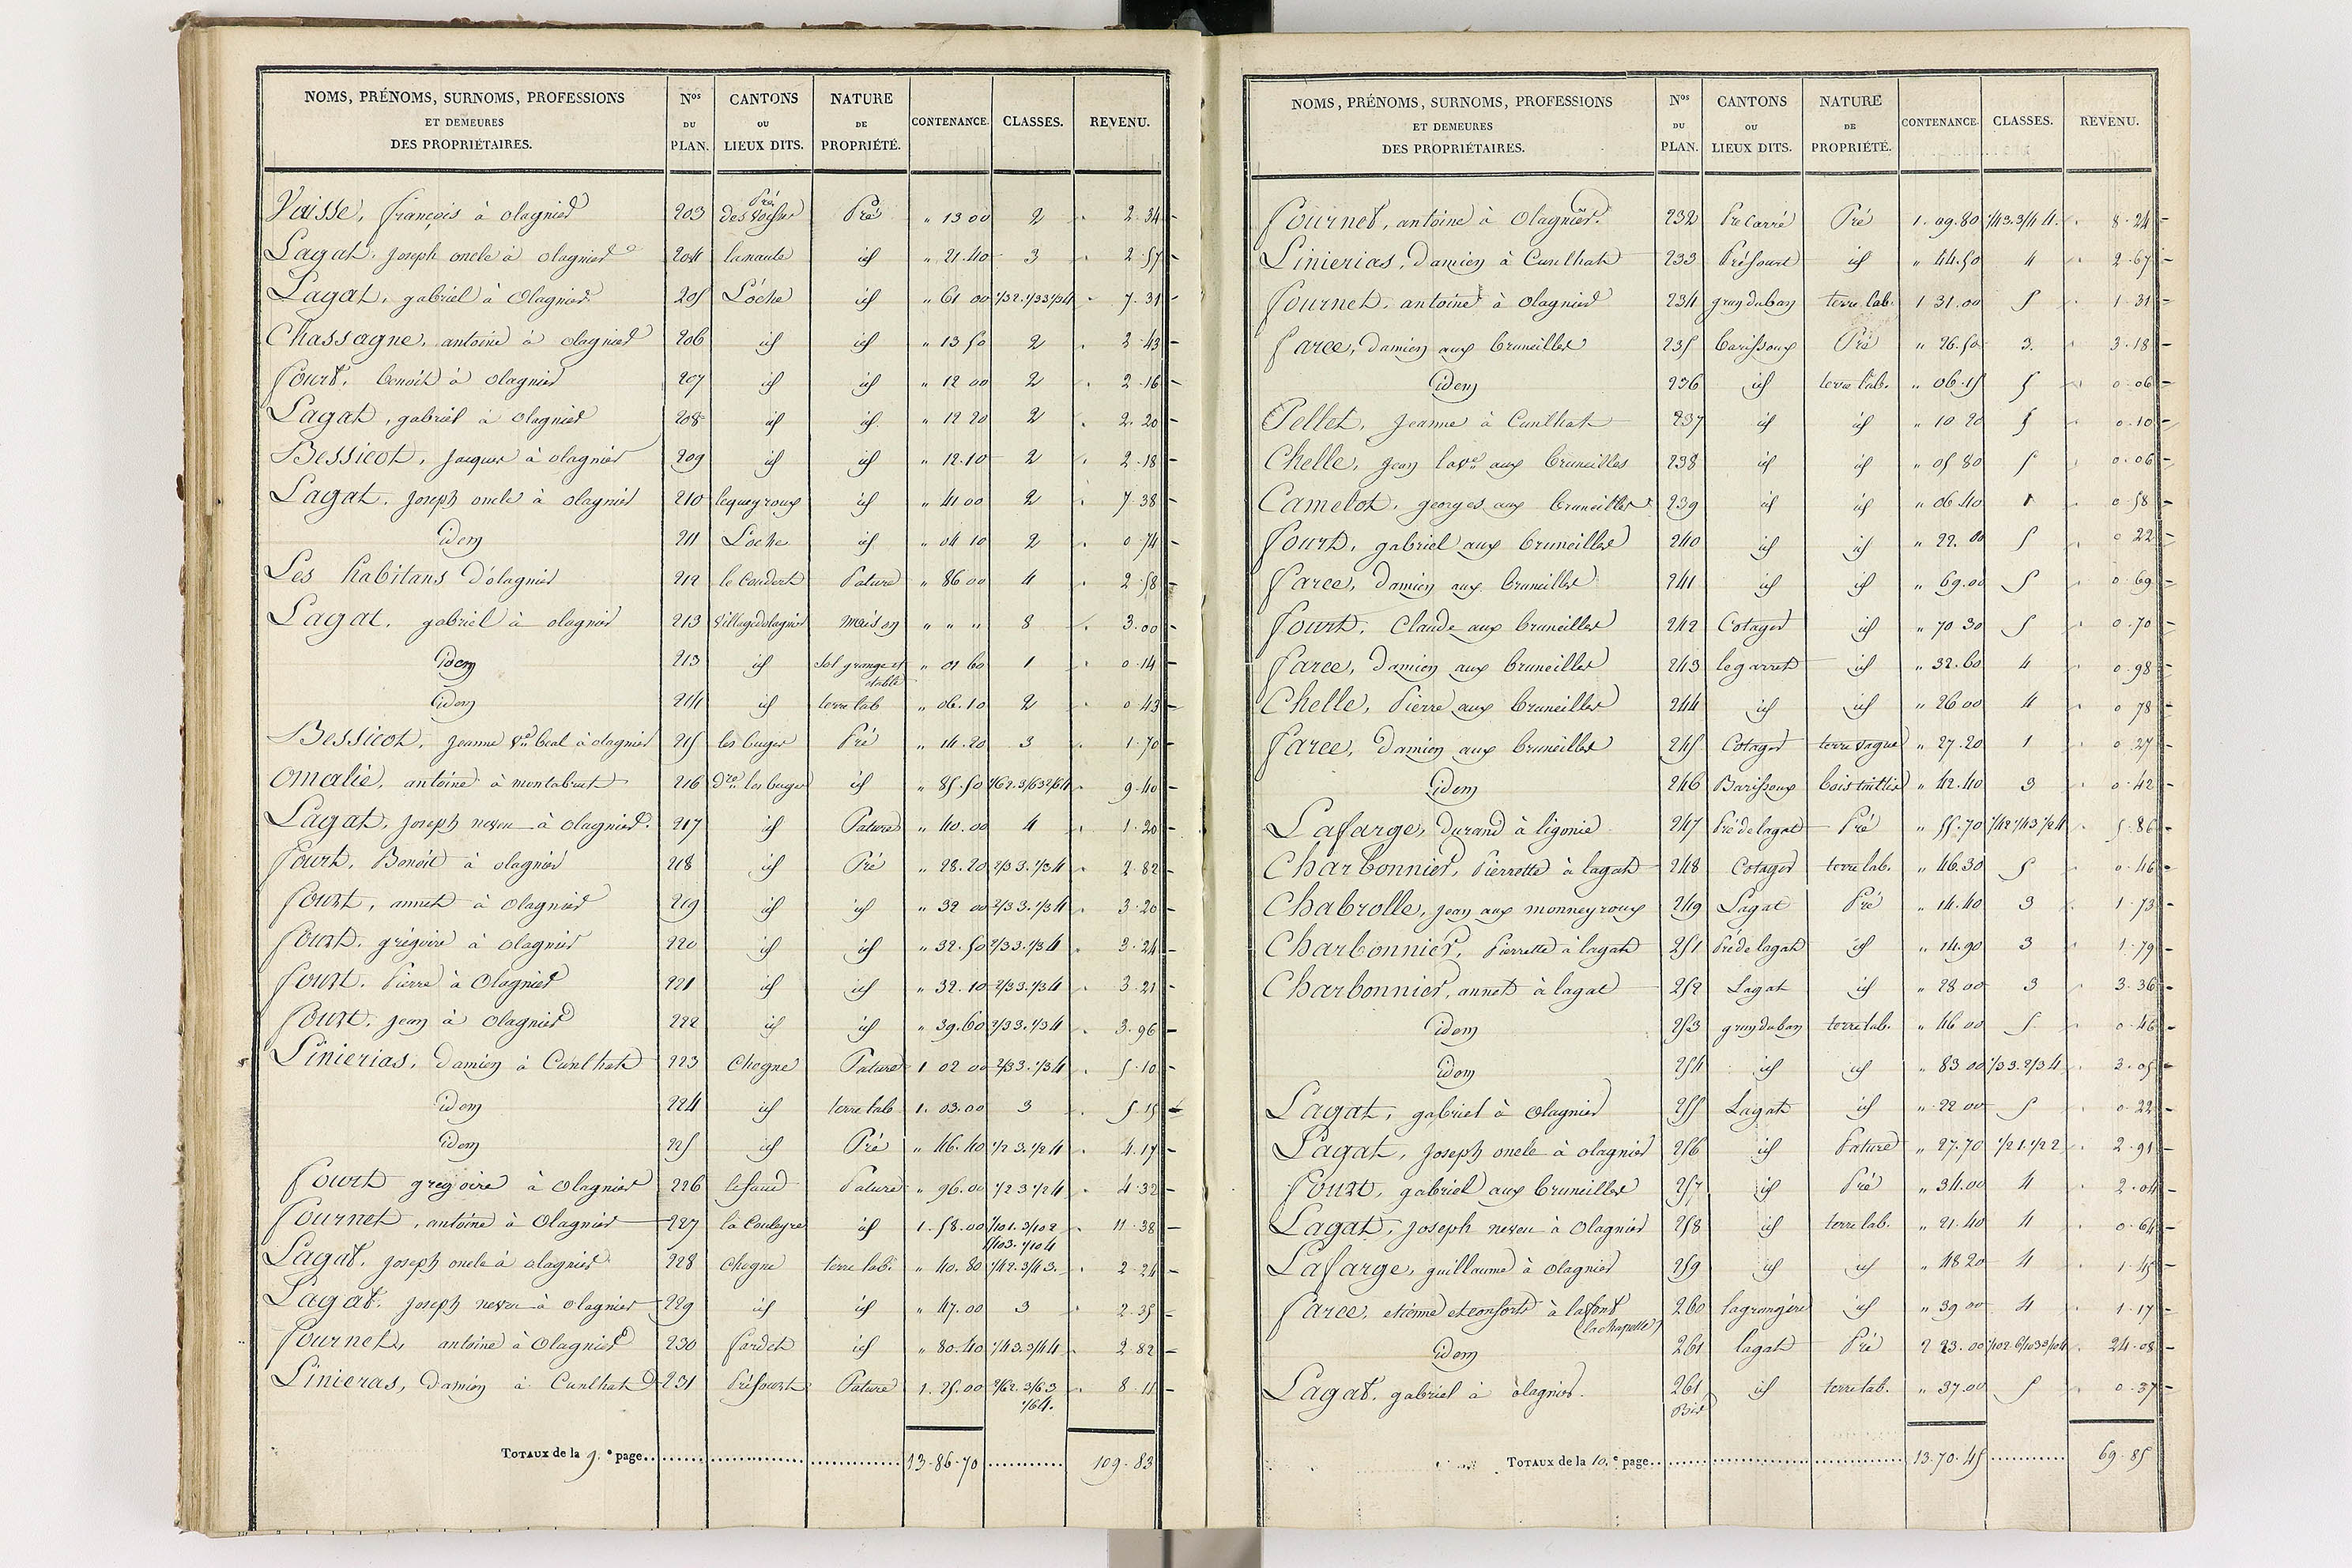 NOMS, PRÉNOMS, SURNOMS, PROFESSIONS ET DEMEURES DES PROPRIÉTAIRES. Nos DU PLAN. CANTONS OU LIEUX DITS. NATURE DE PROPRIÉTÉ. CONTENANCE. CLASSES. REVENU.
Vaisse, françois à olagnier 203 Pré des Pré " 13 00 2 2.34
Lagat, Joseph oncle à olagnier 204 lanaute id " 21.40 3 2.57
Lagat, gabriel à Olagnier 205 L'oche id " 61 00 1/3 2. 1/3 3 1/3 4 7.31
Chassagne, antoine à olagnier 206 id id " 13 50 2 2.43
fourt, benoît à olagnier 207 id id " 12 00 2 2.16
Lagat, gabriel à olagnier 208 id id " 12 20 2 2.20
Bessicot, Jacques à olagnier 209 id id " 12.10 2 2.18
Lagat, Joseph oncle à olagnier 210 lequeyroux id " 41 00 2 7.38
idem 211 L'oche id " 04 10 2 0.74
Les habitans d'olagnier 212 le Coudert Pature " 86 00 4 2.58
Lagat, gabriel à olagnier 213 Village d'olagnier maison " " " 8 3.00
idem 213 id Sol grange et étable " 01 60 1 0.14
idem 214 id terre lab " 06.10 2 0.43
Bessicot, Jeanne Ve beal à olagnier 215 les buges Pré " 14.20 3 1.70
omalie, antoine à montabrut 216 dre les buges id " 85.50 1/6 2. 3/6 3 2/6 4 9.40
Lagat, Joseph neveu à olagnier. 217 id Pature " 40.00 4 1.20
fourt, Benoît à olagnier 218 id Pré " 28.20 2/3 3. 1/3 4 2.82
fourt, annet à olagnier 219 id id " 32 00 2/3 3. 1/3 4 3.20
fourt, grégoire à olagnier 220 id id " 32.50 2/3 3. 1/3 4 3.24
fourt, Pierre à Olagnier 221 id id " 32.10 2/3 3. 1/3 4 3.21
fourt, Jean à olagnier 222 id id " 39.60 2/3 3. 1/3 4 3.96
Linierias, Damien à Cunlhat 223 Chogne Pature 1 02 00 2/3 3. 1/3 4 5.10
idem 224 id terre lab 1. 03.00 3 5.15
idem 225 id Pré " 46.40 1/2 3. 1/2 4 4.17
fourt grégoire à olagnier 226 Pature " 96.00 1/2 3 1/2 4 4.32
fournet, antoine à Olagnier 227 la Couleyre id 1.58.00 1/10 1. 3/10 2 11.38
/10 3. 1/10 4
Lagat, Joseph oncle à olagnier 228 Chogne terre lab. " 40.80 1/4 2. 3/4 3. 2.24
Lagat, Joseph neveu à olagnier 229 id id " 47.00 3 2.35
fournet, antoine à Olagnier 230 fardet id " 80.40 1/4 3. 3/4 4 2.82
Linieras, Damien à Cunlhat 231 Préfourt Pature 1.25.00 2/6 2. 3/6 3 8.11
1/6 4.
TOTAUX de la 9.e page 13.86.70 109.83
NOMS, PRÉNOMS, SURNOMS, PROFESSIONS ET DEMEURES DES PROPRIÉTAIRES. Nos DU PLAN. CANTONS OU LIEUX DITS. NATURE DE PROPRIÉTÉ. CONTENANCE. CLASSES. REVENU.
fournet, antoine à Olagnier. 232 Pré Carré Pré 1.09.80 1/4 3. 3/4 4. 8.24
Linierias, Damien à Cunlhat 233 Préfourt id " 44.50 4 2.67
fournet, antoine à olagnier 234 grandubay terre lab. 1 31.00 5 1.31
farce, Damien aux bruneilles 235 barissoux Pré " 26.50 3. 3.18
idem 236 id terre lab. " 06.15 5 0.06
Pellet, Jeanne à Cunlhat 237 id id " 10 20 5 0.10
Chelle, Jean lave aux bruneilles 238 id id " 05 80 5 0.06
Camelot, georges aux bruneilles 239 id id " 06.40 1 0.58
fourt, gabriel aux bruneilles 240 id id " 22.00 5 0 22
farce, Damien aux bruneilles 241 id id " 69.00 5 0.69
fourt, Claude aux bruneilles 242 Cotager id " 70 30 5 0.70
farce, Damien aux bruneilles 243 legarret id " 32.60 4 0.98
Chelle, Pierre aux bruneilles 244 id id " 26 00 4 0 78
farce, Damien aux bruneilles 245 Cotager terre vague " 27.20 1 0.27
idem 246 Barissoux bois taillis " 42.40 3 0.42
Lafarge, Durand à ligonie 247 Pré de lagat Pré " 55.70 1/4 2 1/4 3 1/2 4 5.86
Charbonnier, Pierrette à lagat 248 Cotager terre lab. " 46.30 5 0.46
Chabrolle, Jean aux monneyroux 249 Lagat Pré " 14.40 3 1.73
Charbonnier, Pierrette à lagat 251 Pré de lagat id " 14.90 3 1.79
Charbonnier, annet à lagat 252 Lagat id " 28 00 3 3.36
idem 253 grandubay terre lab. " 46 00 5 0.46
idem 254 id id " 83 00 1/3 3. 2/3 4 3.05
Lagat, gabriel à olagnier 255 Lagat id " 22 00 5 0.22
Lagat, Joseph oncle à olagnier 256 id Pature " 27.70 1/2 1. 1/2 2 2.91
fourt, gabriel aux bruneilles 257 id Pré " 34.00 4 2.04
Lagat, Joseph neveu à Olagnier 258 id terre lab. " 21.40 4 0.64
Lafarge, guillaume à olagnier 259 id id " 48 20 4 1.45
farce, etienne et consorts à lafont (lachapelle) 260 lagrangère id " 39 00 4 1.17
idem 261 lagat Pré 2 23.00 1/10 2. 6/10 3 3/10 4 24.08
Lagat, gabriel à olagnier. 261 Bis id terre lab. " 37.00 5 0.37
TOTAUX de la 10.e page 13.70.45 69.85